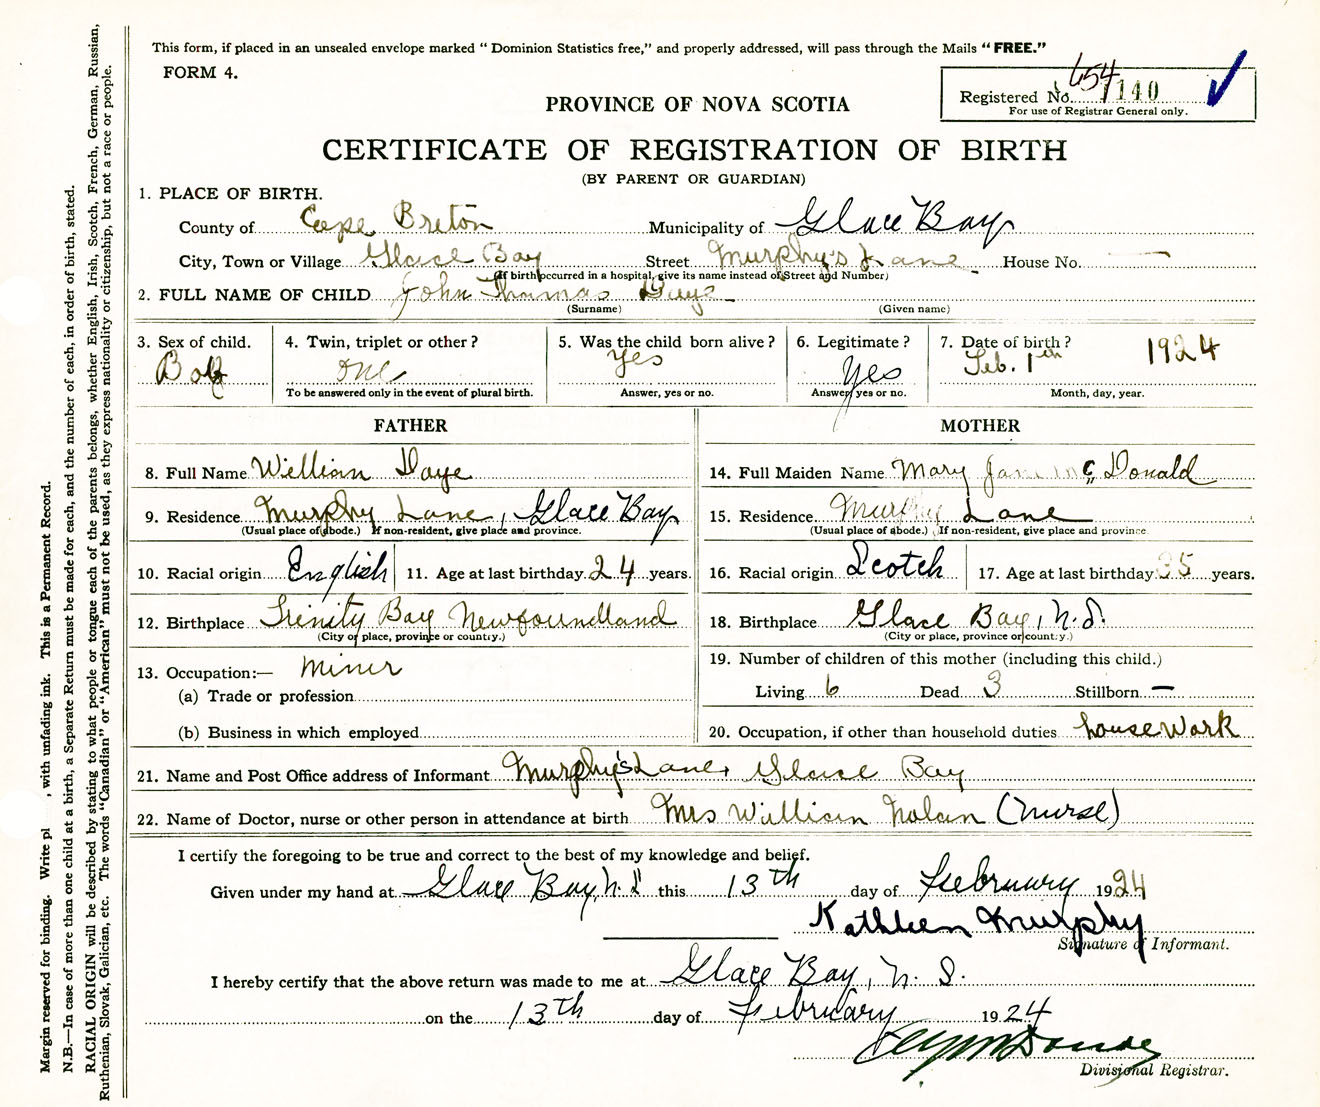 This form, if placed in an unsealed envelope marked "Dominion Statistics free," and properly addressed, will pass through the Mails "FREE."
FORM 4.
654
Registered No. 1140
For use of Registrar General only.
PROVINCE OF NOVA SCOTIA
CERTIFICATE OF REGISTRATION OF BIRTH
(BY PARENT OR GUARDIAN)
1. PLACE OF BIRTH.
County of Cape Breton Municipality of Glace Bay
City, Town or Village Glace Bay Street Murphy's Lane House No. —
(If birth occurred in a hospital, give its name instead of Street and Number)
2. FULL NAME OF CHILD John Thomas Daye
(Surname) (Given name)
3. Sex of child. 4. Twin, triplet or other? 5. Was the child born alive? 6. Legitimate? 7. Date of birth?
Boy one Yes Yes Feb. 1 1924
To be answered only in the event of plural birth. Answer, yes or no. Answer, yes or no. Month, day, year.
FATHER MOTHER
8. Full Name William Daye 14. Full Maiden Name Mary Jane McDonald
9. Residence Murphy Lane, Glace Bay 15. Residence Murphy Lane
(Usual place of abode.) If non-resident, give place and province. (Usual place of abode.) If non-resident, give place and province.
10. Racial origin English 11. Age at last birthday 24 years. 16. Racial origin Scotch 17. Age at last birthday 35 years.
12. Birthplace Trinity Bay Newfoundland 18. Birthplace Glace Bay, N.S.
(City or place, province or country.) (City or place, province or country.)
13. Occupation:— Miner 19. Number of children of this mother (including this child.)
(a) Trade or profession Living 6 Dead 3 Stillborn —
(b) Business in which employed 20. Occupation, if other than household duties house Work
21. Name and Post Office address of Informant Murphy's Lane, Glace Bay
22. Name of Doctor, nurse or other person in attendance at birth Mrs William Nolan (Nurse)
I certify the foregoing to be true and correct to the best of my knowledge and belief.
Given under my hand at Glace Bay, N.S. this 13th day of February 1924
Kathleen Murphy
Signature of Informant.
I hereby certify that the above return was made to me at Glace Bay, N.S.
on the 13th day of February 1924
Divisional Registrar.
Margin reserved for binding. Write pl , with unfading ink. This is a Permanent Record.
N.B.—In case of more than one child at a birth, a Separate Return must be made for each, and the number of each, in order of birth, stated.
RACIAL ORIGIN will be described by stating to what people or tongue each of the parents belongs, whether English, Irish, Scotch, French, German, Russian,
Ruthenian, Slovak, Galician, etc. The words "Canadian" or "American" must not be used, as they express nationality or citizenship, but not a race or people.